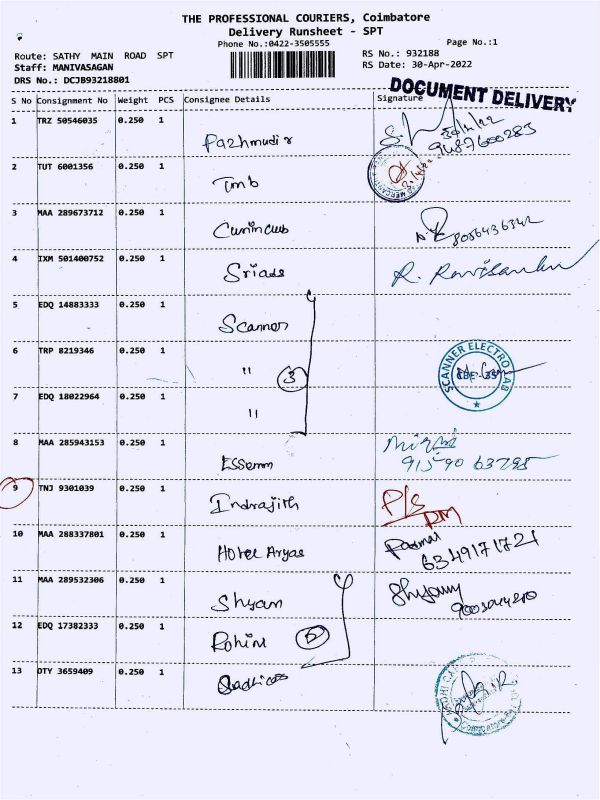 THE PROFESSIONAL COURIERS, Coimbatore
Delivery Runsheet - SPT
Phone No.:0422-3505555
Page No.:1
Route: SATHY MAIN ROAD SPT
RS No.: 932188
Staff: MANIVASAGAN
RS Date: 30-Apr-2022
DRS No.: DCJB93218801
DOCUMENT DELIVERY
S No Consignment No Weight PCS Consignee Details Signature
1 TRZ 50546035 0.250 1 Pazhmudir
30/4/22
9487600285
2 TUT 6001356 0.250 1 Tmb
3 MAA 289673712 0.250 1
8056436342
4 IXM 501400752 0.250 1 Sriads R. Ravisankar
5 EDQ 14883333 0.250 1 Scanner
6 TRP 8219346 0.250 1 " 3 SCANNER ELECTRO LAB
7 EDQ 18022964 0.250 1 "
8 MAA 285943153 0.250 1 Essemm
91590 63795
9 TNJ 9301039 0.250 1 Indrajith P/S
RM
10 MAA 288337801 0.250 1 Hotel Aryas
6349171721
11 MAA 289532306 0.250 1 Shyam
12 EDQ 17382333 0.250 1 Rohini 5
13 DTY 3659409 0.250 1